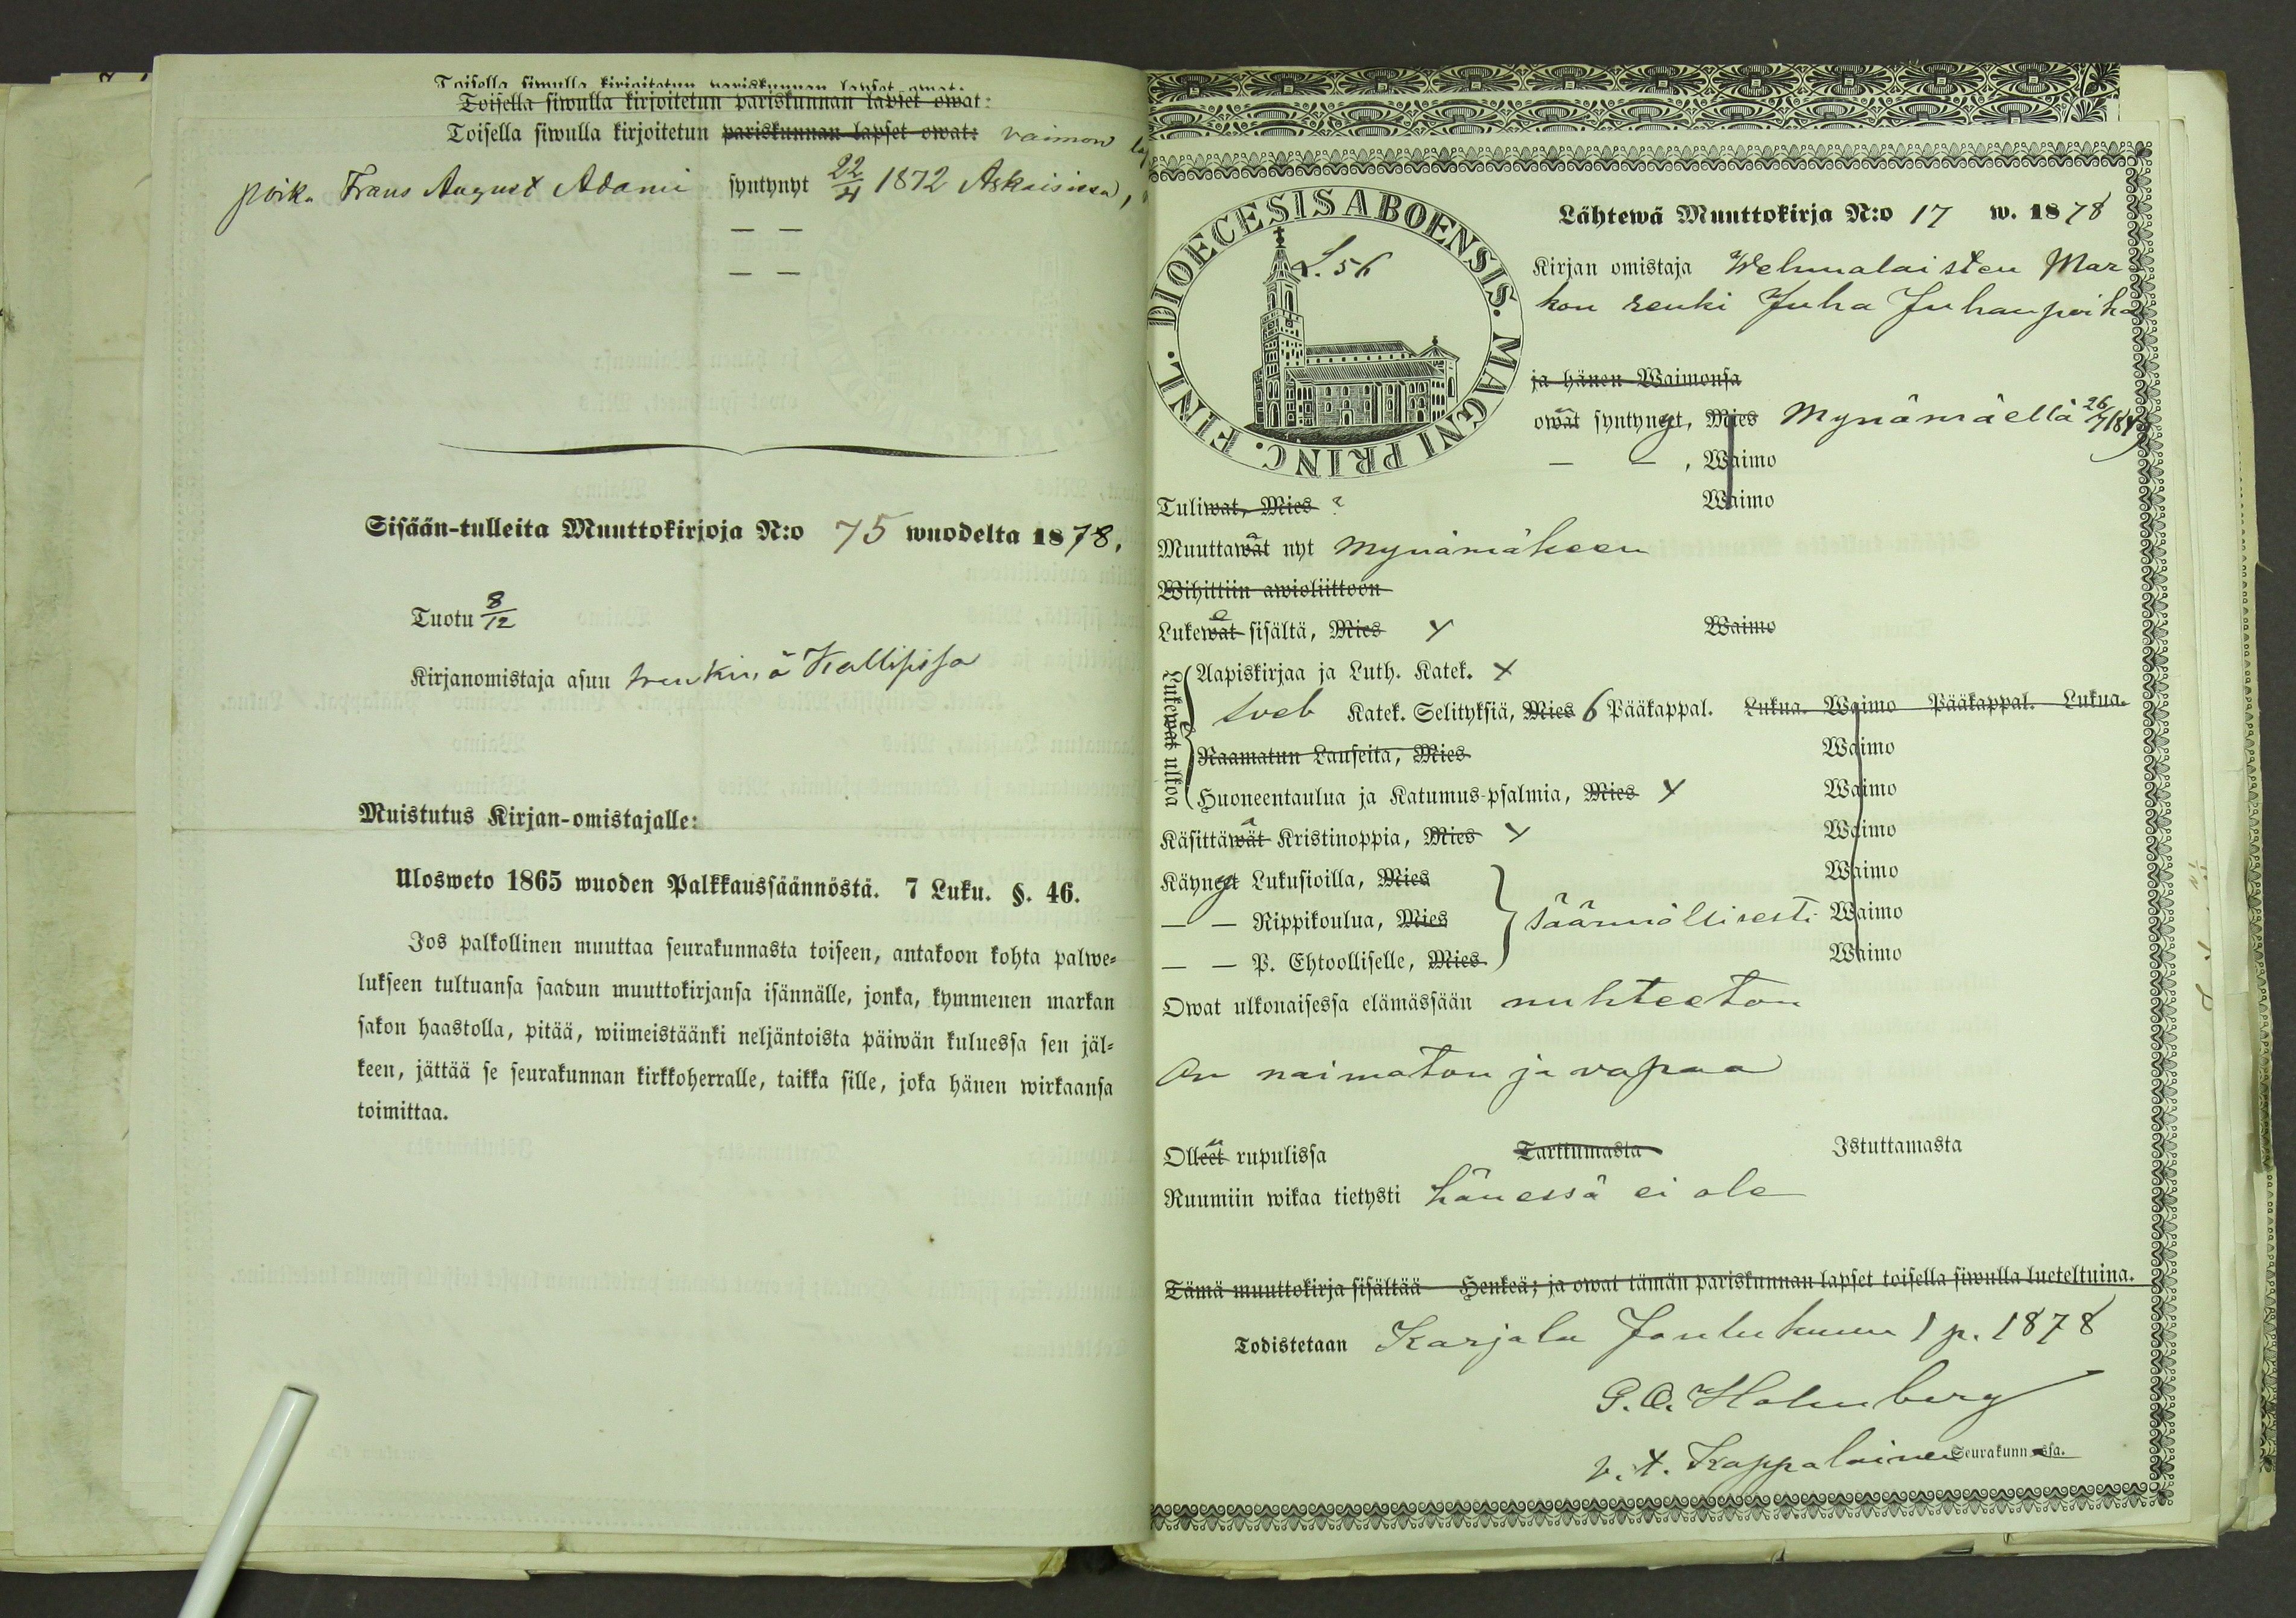 Toisella siwulla kirjoitetun pariskunnan lapset owat:
Toisella siwulla kirjoitetun pariskunnan lapset owat:
Toisella siwulla kirjoitetun pariskunnan lapset owat: vaimon
poika Frans August Adami syntynyt 22/4 1872 Askaisissa,
— —
— —
Sisään-tulleita Muuttokirjoja N:o 75 wuodelta 1878.
Tuotu 8/12
Kirjanomistaja asuu trenkinä
Muistutus Kirjan-omistajalle:
Ulosweto 1865 wuoden Palkkaussäännöstä. 7 Luku. §. 46.
Jos palkollinen muuttaa seurakunnasta toiseen, antakoon kohta palwe-
lukseen tultuansa saadun muuttokirjansa isännälle, jonka, kymmenen markan
sakon haastolla, pitää, wiimeistäänki neljäntoista päiwän kuluessa sen jäl-
keen, jättää se seurakunnan kirkkoherralle, taikka sille, joka hänen wirkaansa
toimittaa.
DIOECESIS ABOENSIS. MAGNI PRINC. FINL.
L. 56
Lähtewä Muuttokirja N:o 17 w. 1878
Kirjan omistaja Wehmalaisten Mar
kon renki Juha Juhanpoika
ja hänen Waimonsa
owat syntynyt, Mies Mynämäellä 26/7
— — , Waimo
Tuliwat, Mies ? Waimo
Muuttawat nyt Mynämäkeen
Wihittiin awioliittoon
Lukewat sisältä, Mies x Waimo
Lukewat ulkoa
Aapiskirjaa ja Luth. Katek. x
Sveb Katek. Selityksiä, Mies 6 Pääkappal. Lukua. Waimo Pääkappal. Lukua.
Raamatun Lauseita, Mies Waimo
Huoneentaulua ja Katumus-psalmia, Mies x Waimo
Käsittäwät Kristinoppia, Mies x Waimo
Käynyt Lukusioilla, Mies Waimo
— — Rippikoulua, Mies säännöllisesti Waimo
— — P. Ehtoolliselle, Mies Waimo
Owat ulkonaisessa elämässään nuhteeton
On naimaton ja vapaa
Olleet rupulissa Tarttumasta Istuttamasta
Ruumiin wikaa tietysti hänessä ei ole
Tämä muuttokirja sisältää Henkeä; ja owat tämän pariskunnan lapset toisella siwulla lueteltuina.
Todistetaan Karjala Joulukuun 1 p. 1878
G. O. Holmberg
v. t. Kappalainen Seurakunnassa.